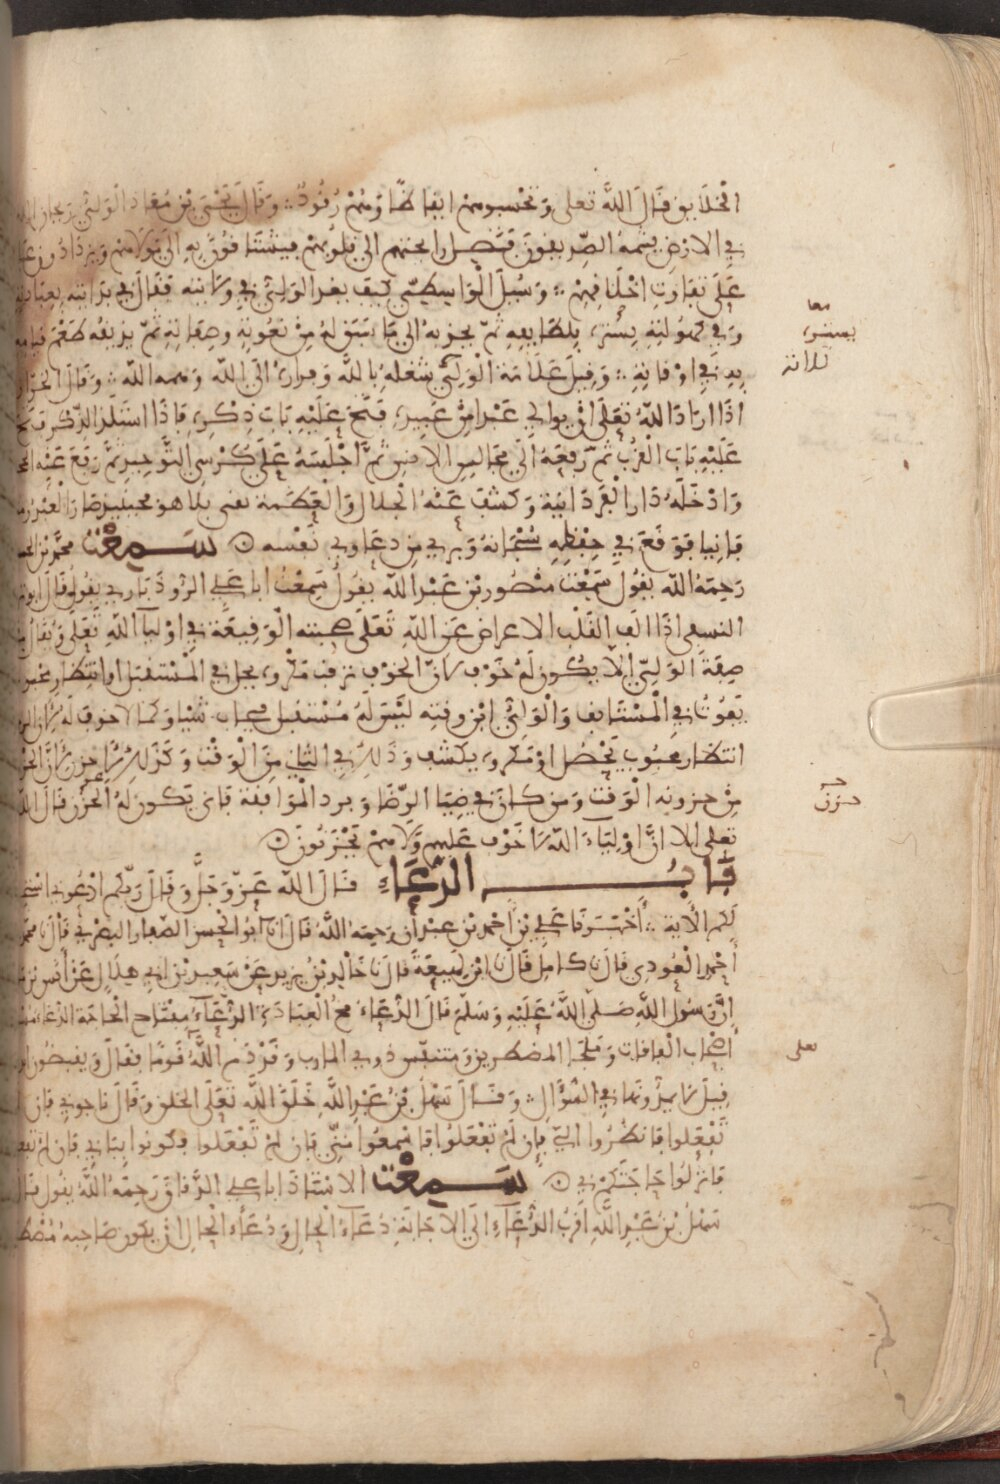 الخلايق قال الله تعلى وتحسبوهمن ايقاظا وهمن رقود ؞ وقال يحيى بن معاذ الولي ريحان الله
في الارض يشمه الصديقون فتصل رايحتهم الى قلوبهمن فيشتاقون به الى مولاهمن ويزدادون عبا
على تفاوت اخلاقهمن ؞ وسئل الواسطي كيف يغذى الولي في ولايته فقال في بدايته بعبادته
وفي كهولته بستره بلطايفه ثم يجذبه الى ما سبق له من نعوته وصفاته ثم يذيقه طعم قيامه
به في اوقاته ؞ وقيل علامة الولي شغله بالله وفراره الى الله وهمه الله ؞ وقال الخراز
اذا اراد الله تعلى ان يوالي عبدا من عبيده فتح عليه باب ذكره فاذا استلذ الذكر فتح
عليه باب القرب ثم رفعه الى مجالس الانس ثم اجلسه على كرسي التوحيد ثم رفع عنه الحجب
وادخله دار الفردانية وكشف عنه الجلال والعظمة بقي بلا هو فحينيذ صار العبد زمنا
فانيا فوقع في حفظه سبحانه وبري من دعاوي نفسه ۞ سمعت محمد بن الحسين
رحمه الله يقول سمعت منصور بن عبد الله يقول سمعت ابا علي الروذباري يقول قال ابو تراب
النسفي اذا الف القلب الاعراض عن الله تعلى صحبته الوقيعة في اوليآ الله تعلى ويقال من
صفة الولي الا يكون له خوف لان الخوف ترقب مكروه يحل في المستقبل او انتظار محبوب
يفوت في المستانف والولي ابن وقته ليس له مستقبل فيخاف شيا وكما لا خوف له لا رجا له لان الرجا
انتظار محبوب يحصل او مكروه يكشف وذلك في الثاني من الوقت وكذلك لا حزن له لان الحزن
من حزونه الوقت ومن كان في ضيا الرضا وبرد الموافقة فانى يكون له الحزن قال الله
تعلى الا ان اولياء الله لا خوف عليهم ولا همن يحزنون ۞
باب الدعاء قال الله عز وجل وقال ربكم ادعوني استجب
لكم الاية ؞ اخبرنا علي بن احمد بن عبدان رحمه الله قال انا ابو الحسن الصفار البصري قال نا محمد بن
احمد العودي قال نا كامل قال نا ابن لهيعة قال نا خالد بن يزيد عن سعيد بن ابي هلال عن انس بن مالك
ان رسول الله صلى الله عليه وسلم قال الدعاء مخ العبادة الدعاء مفتاح الحاجة
اصحاب الفاقات وملجا المضطرين ومتنفس ذوي المارب وقد ذم الله قوما فقال ويقبضون ايديهم
قيل لا يمدونها في السؤال ؞ وقال سهل بن عبد الله خلق الله تعلى الخلق وقال ناجوني فان لم
تفعلوا فانظروا الي فان لم تفعلوا فاسمعوا مني فان لم تفعلوا فكونوا ببابي فان لم تفعلوا
فانزلوا حاجتكم بي ۞ سمعت الاستاذ ابا علي الدقاق رحمه الله يقول قال
سهل بن عبد الله اقرب الدعآء الى الاجابة دعآء الحال ودعآء الحال ان يكون صاحبه مضطرا
معا
بستره
ثلاثة
حزن
تعلى